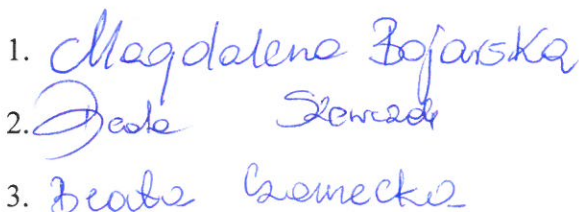 1. Magdalena Bojarska
2. Beata Szewczak
3. Beata Czarnecka